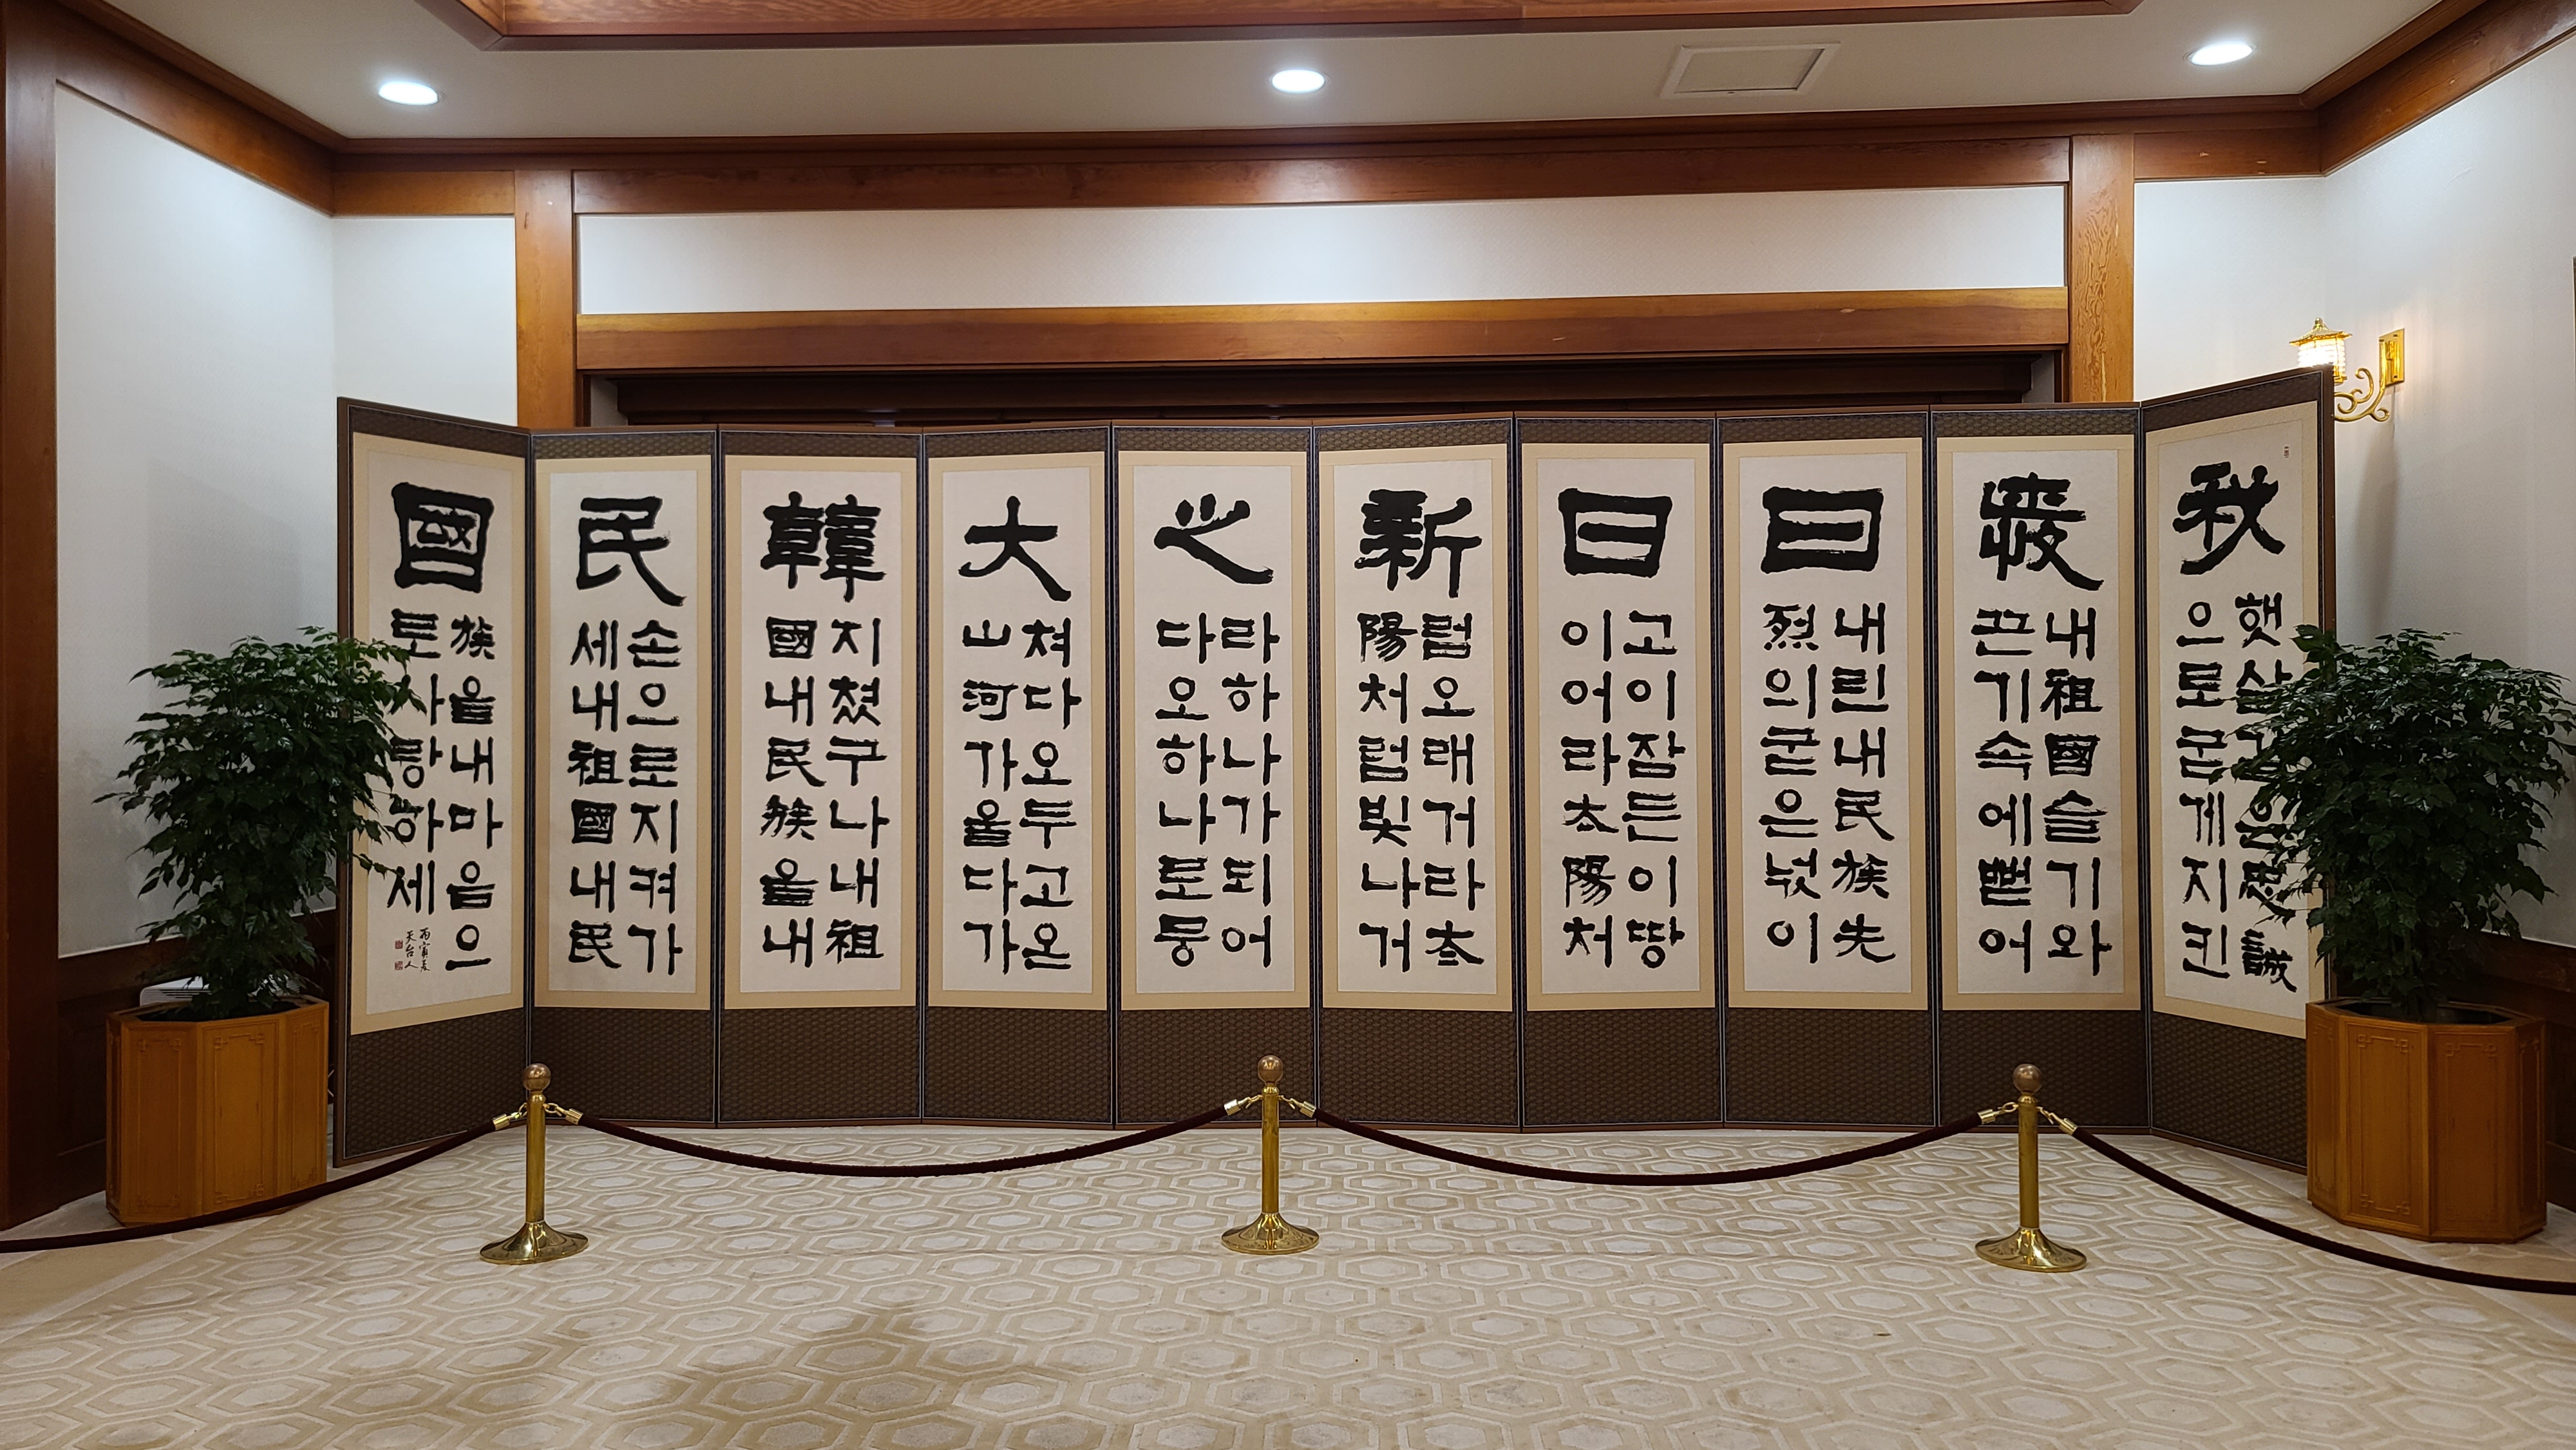 秋
햇살은忠誠
으로굳게지킨
내祖國슬기와
끈기속에뻗어
曰
내린내民族先
烈의굳은넋이
日
고이잠든이땅
이어라太陽처
新
럼오래거라太
陽처럼빛나거
之
라하나가되어
다오하나로뭉
大
쳐다오두고온
山河가울다가
韓
지쳤구나내祖
國내民族을내
民
손으로지켜가
세내祖國내民
國
族을내마음으
로사랑하세
丙寅夏
天台人